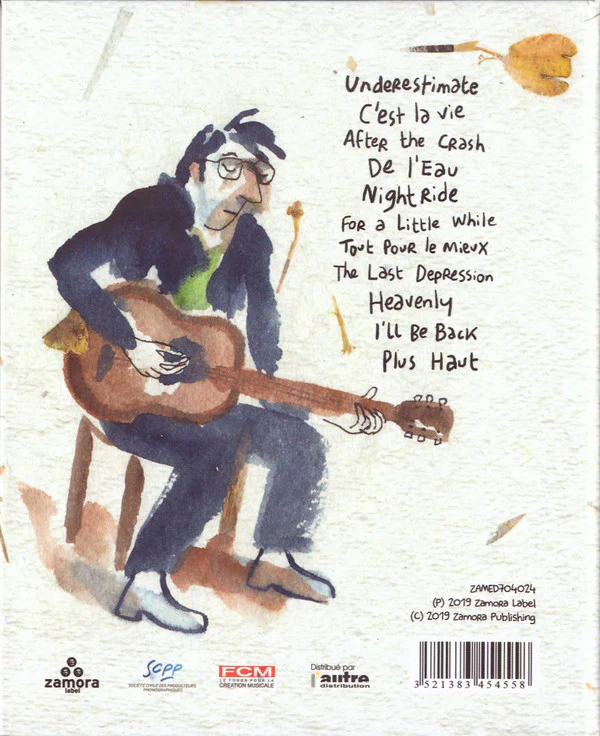 Underestimate
C'est la vie
After the Crash
De l'Eau
Night Ride
For a Little While
Tout Pour le Mieux
The Last Depression
Heavenly
I'll Be Back
Plus Haut
ZAMED704024
(P) 2019 Zamora Label
(C) 2019 Zamora Publishing
zamora
label
SCPP
SOCIÉTÉ CIVILE DES PRODUCTEURS
PHONOGRAPHIQUES
FCM
LE FONDS POUR LA
CRÉATION MUSICALE
Distribué par
l'autre
distribution
3 521383 454558